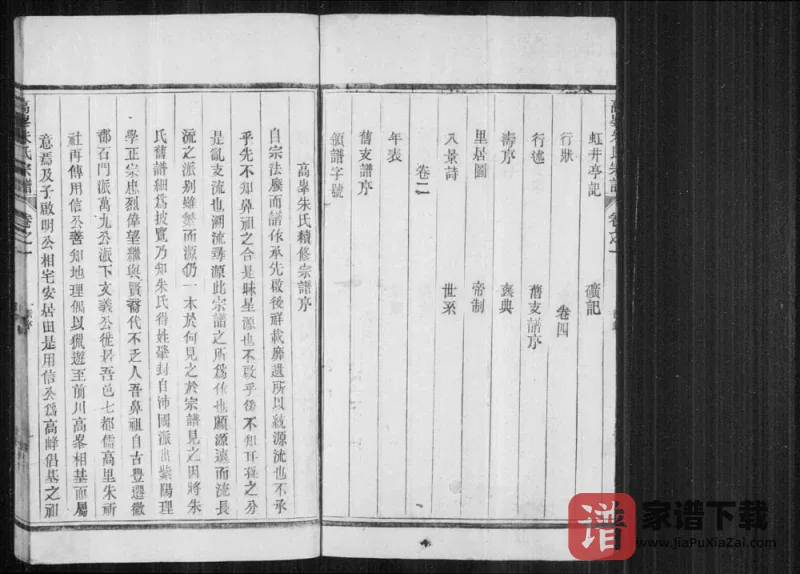 高峯朱氏宗譜
卷之一
虹井亭記
礦記
行狀
卷四
行述
舊支譜序
壽序
褒典
里居圖
帝制
八景詩
世系
卷二
年表
舊支譜序
領譜字號
高峯朱氏續修宗譜序
自宗法廢而譜依承先啟後祥載靡遺所以統源流也不承
乎先不知鼻祖之合是昧星源也不啟乎後不知耳孫之分
是亂支流也溯流尋源此宗譜之所爲依也顧源遠而流長
流之派别雖繁而源仍一本於何見之於宗譜見之因將朱
氏舊譜細爲披覽乃知朱氏得姓肇封自沛國派出紫陽理
學正宗忠烈偉望繼與賢裔代不乏人吾鼻祖自古豐遷徽
郡石門派萬九公派下文義公徙居吾邑七都儒高里朱祈
社再傳用信公善知地理偶以獵遊至前川高峯相基而屬
意焉及子啟明公相宅安居田是用信公爲高峰侣基之祖
高峯朱氏宗譜
卷之一
譜
家谱下载
www.JiaPuXiaZai.com